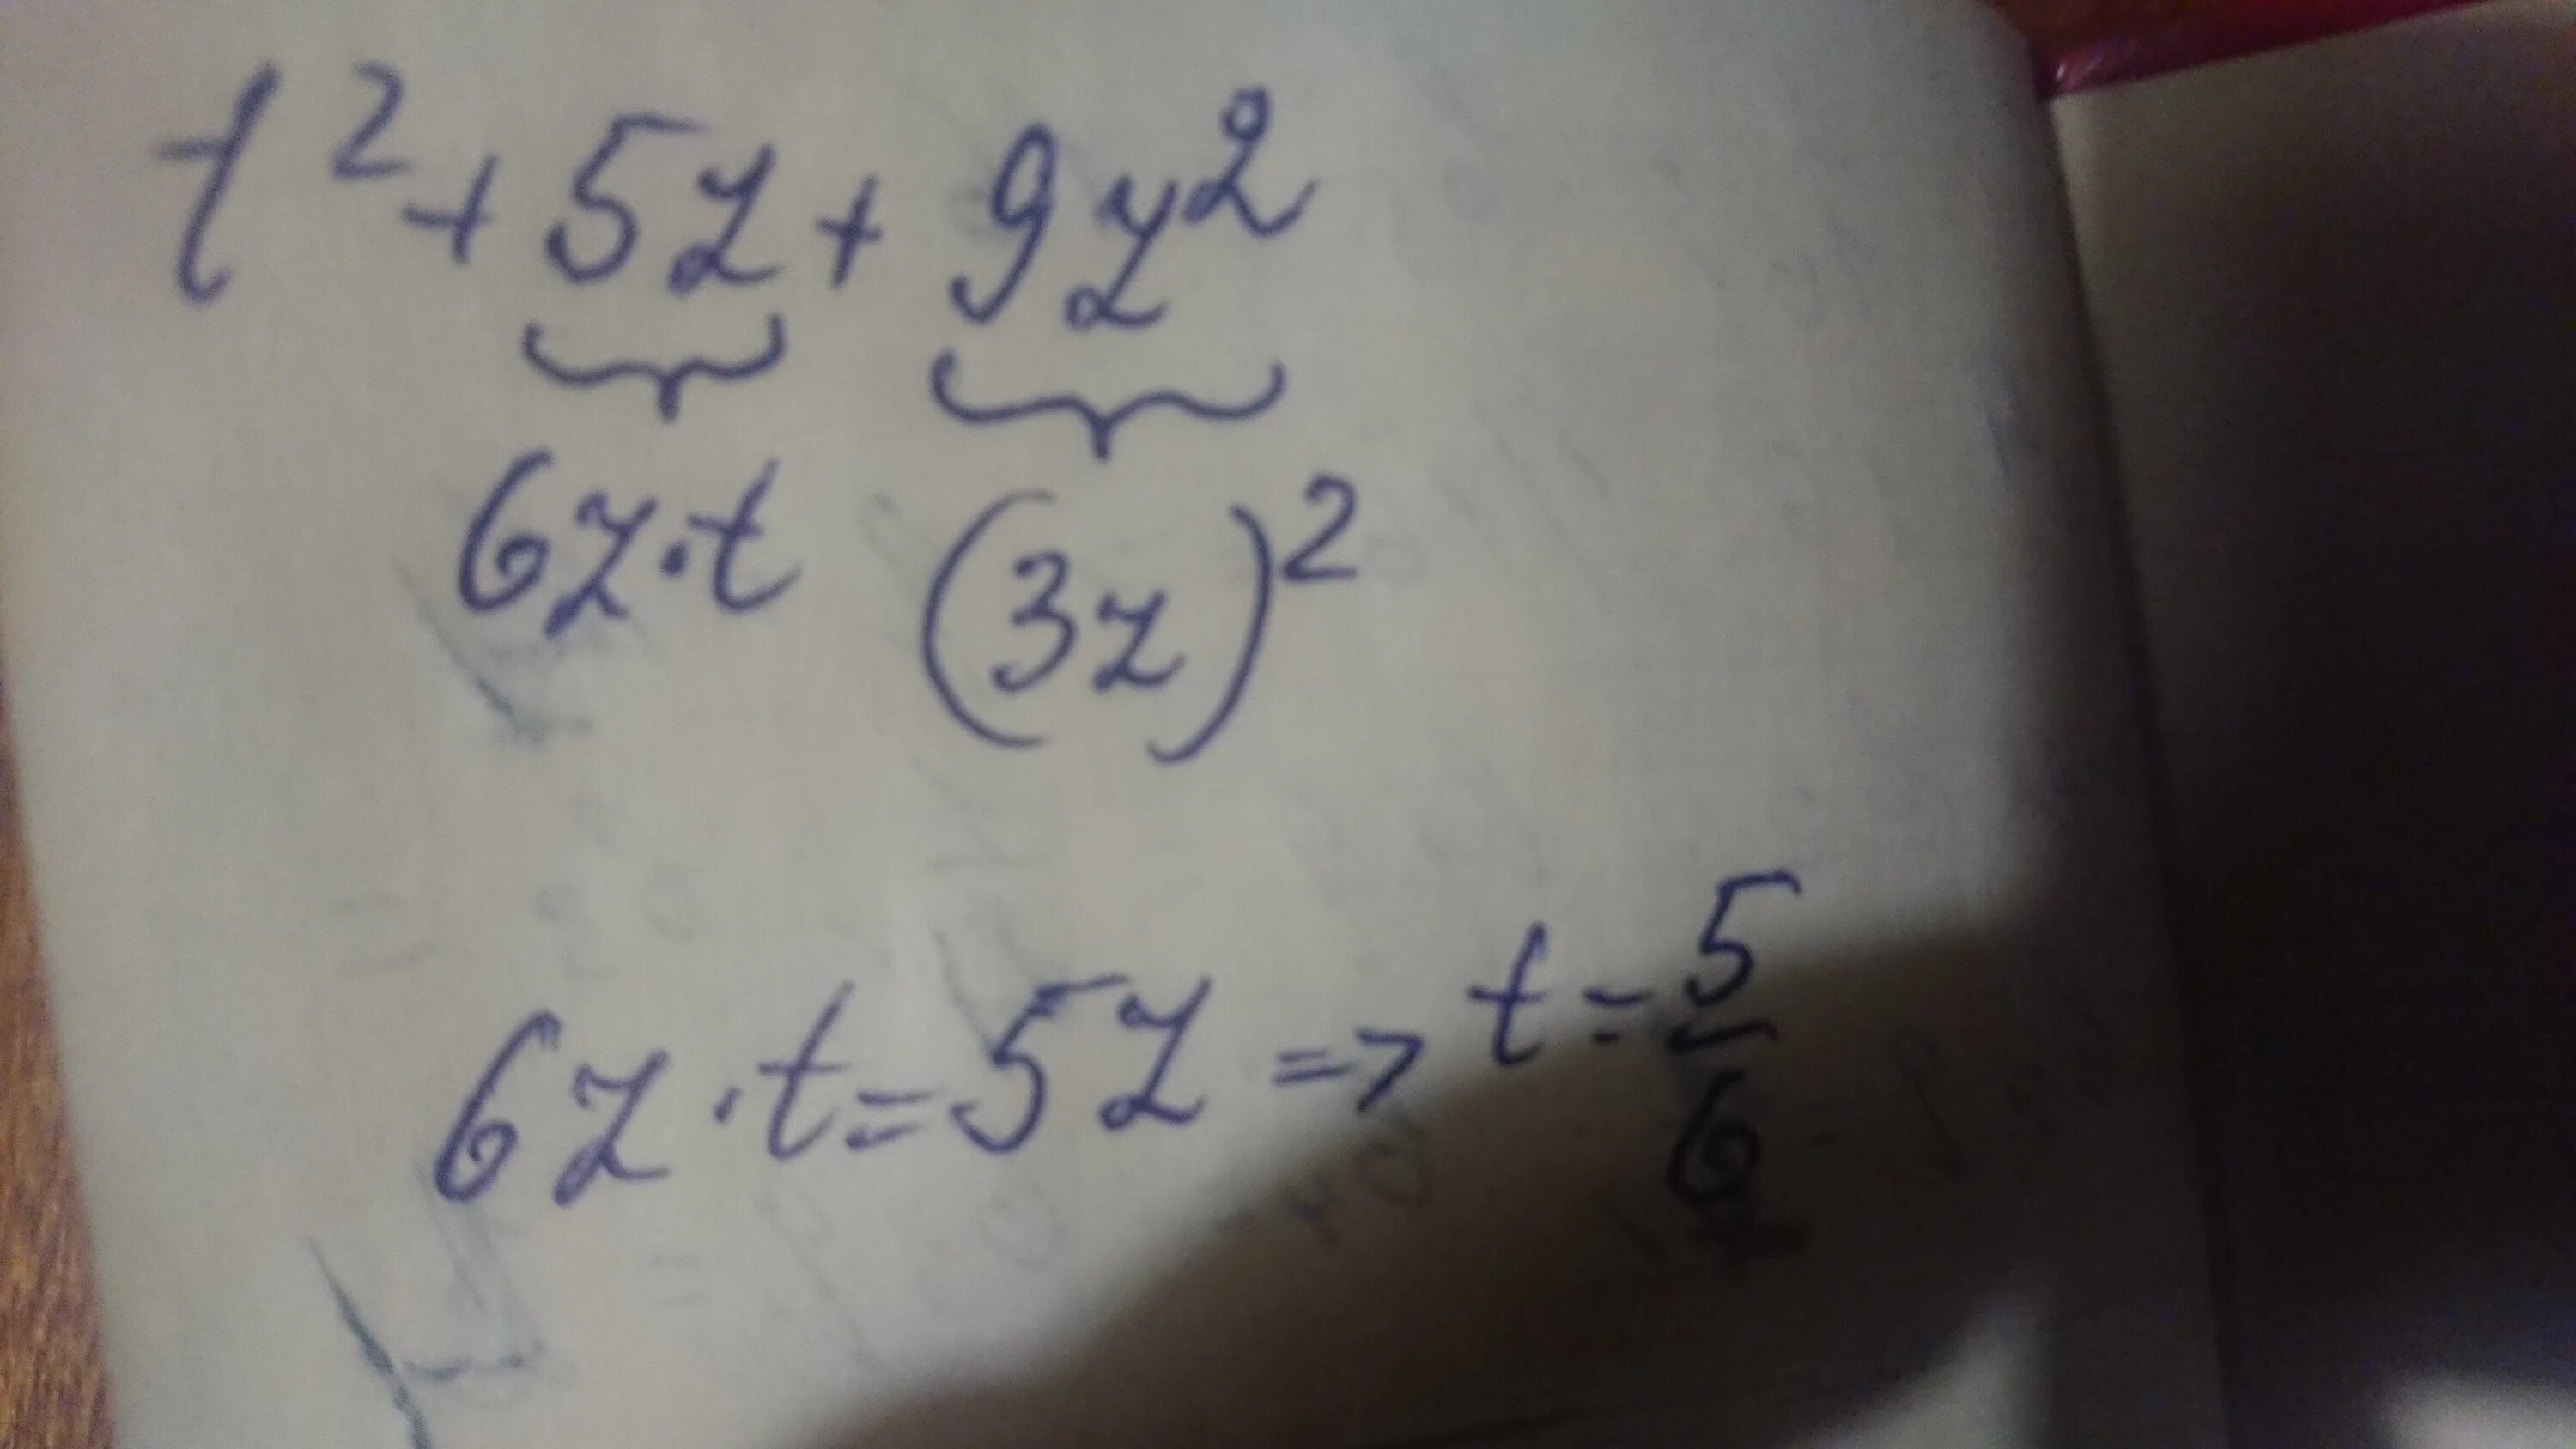 t² + 5z + 9z²
6z·t (3z)²
6z·t=5z => t = 5/6